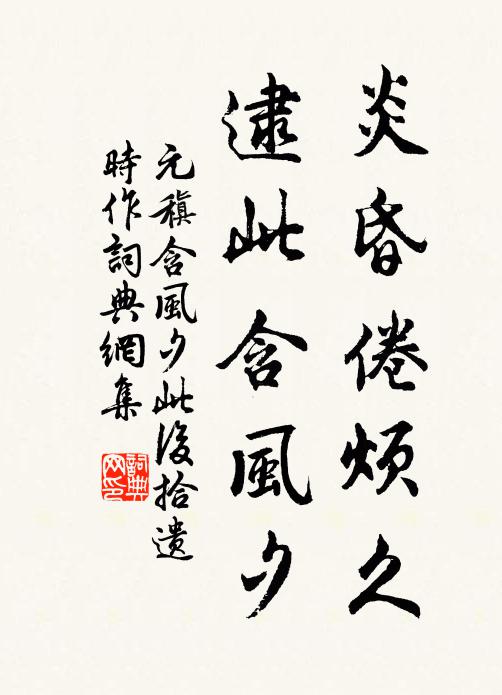 炎昏倦煩久
逮此含風夕
元稹含風夕此後拾遺
時作詞典網集
詞典
网印